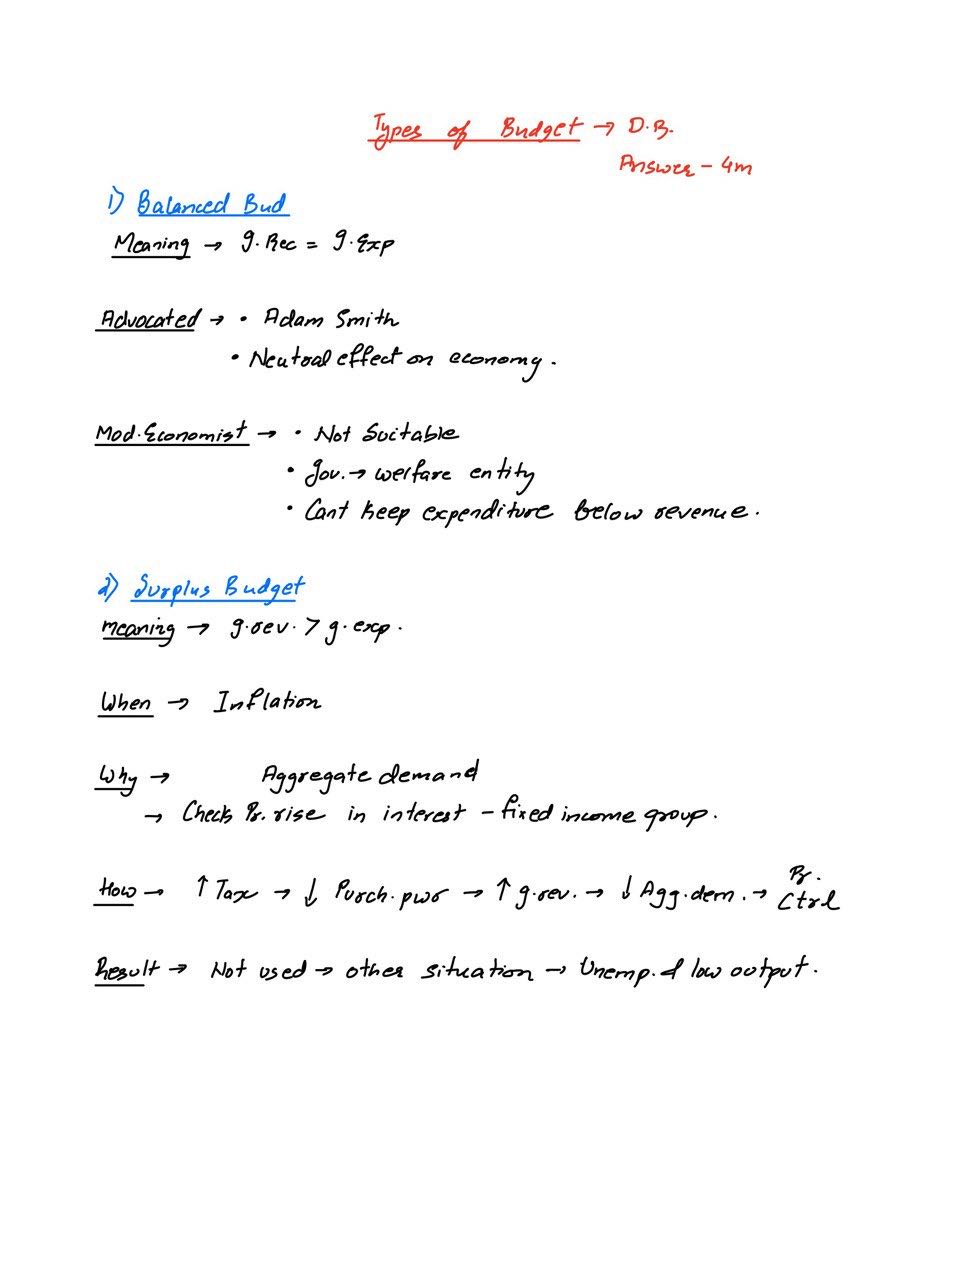 Types of Budget → D.B.
Answer - 4m
1) Balanced Bud
Meaning → g.Rec = g.Exp
Advocated → • Adam Smith
• Neutral effect on economy.
Mod.Economist → • Not Suitable
• Gov. → welfare entity
• Cant keep expenditure below revenue.
2) Surplus Budget
Meaning → g.rev. > g.exp.
When → Inflation
Why → Aggregate demand
→ Check Pr. rise in interest - fixed income group.
How → ↑ Tax → ↓ Purch.pwr → ↑ g.rev. → ↓ Agg.dem. → Pr. Ctrl
Result → Not used → other situation → Unemp. & low output.